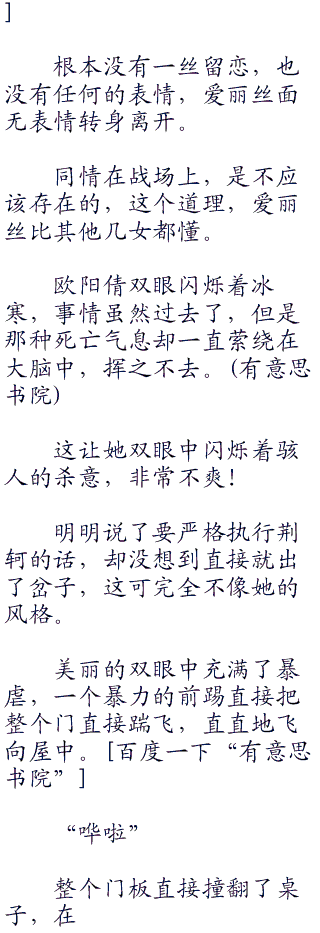 ]
根本没有一丝留恋，也
没有任何的表情，爱丽丝面
无表情转身离开。
同情在战场上，是不应
该存在的，这个道理，爱丽
丝比其他几女都懂。
欧阳倩双眼闪烁着冰
寒，事情虽然过去了，但是
那种死亡气息却一直萦绕在
大脑中，挥之不去。(有意思
书院)
这让她双眼中闪烁着骇
人的杀意，非常不爽！
明明说了要严格执行荆
轲的话，却没想到直接就出
了岔子，这可完全不像她的
风格。
美丽的双眼中充满了暴
虐，一个暴力的前踢直接把
整个门直接踹飞，直直地飞
向屋中。[百度一下“有意思
书院”]
“哗啦”
整个门板直接撞翻了桌
子，在